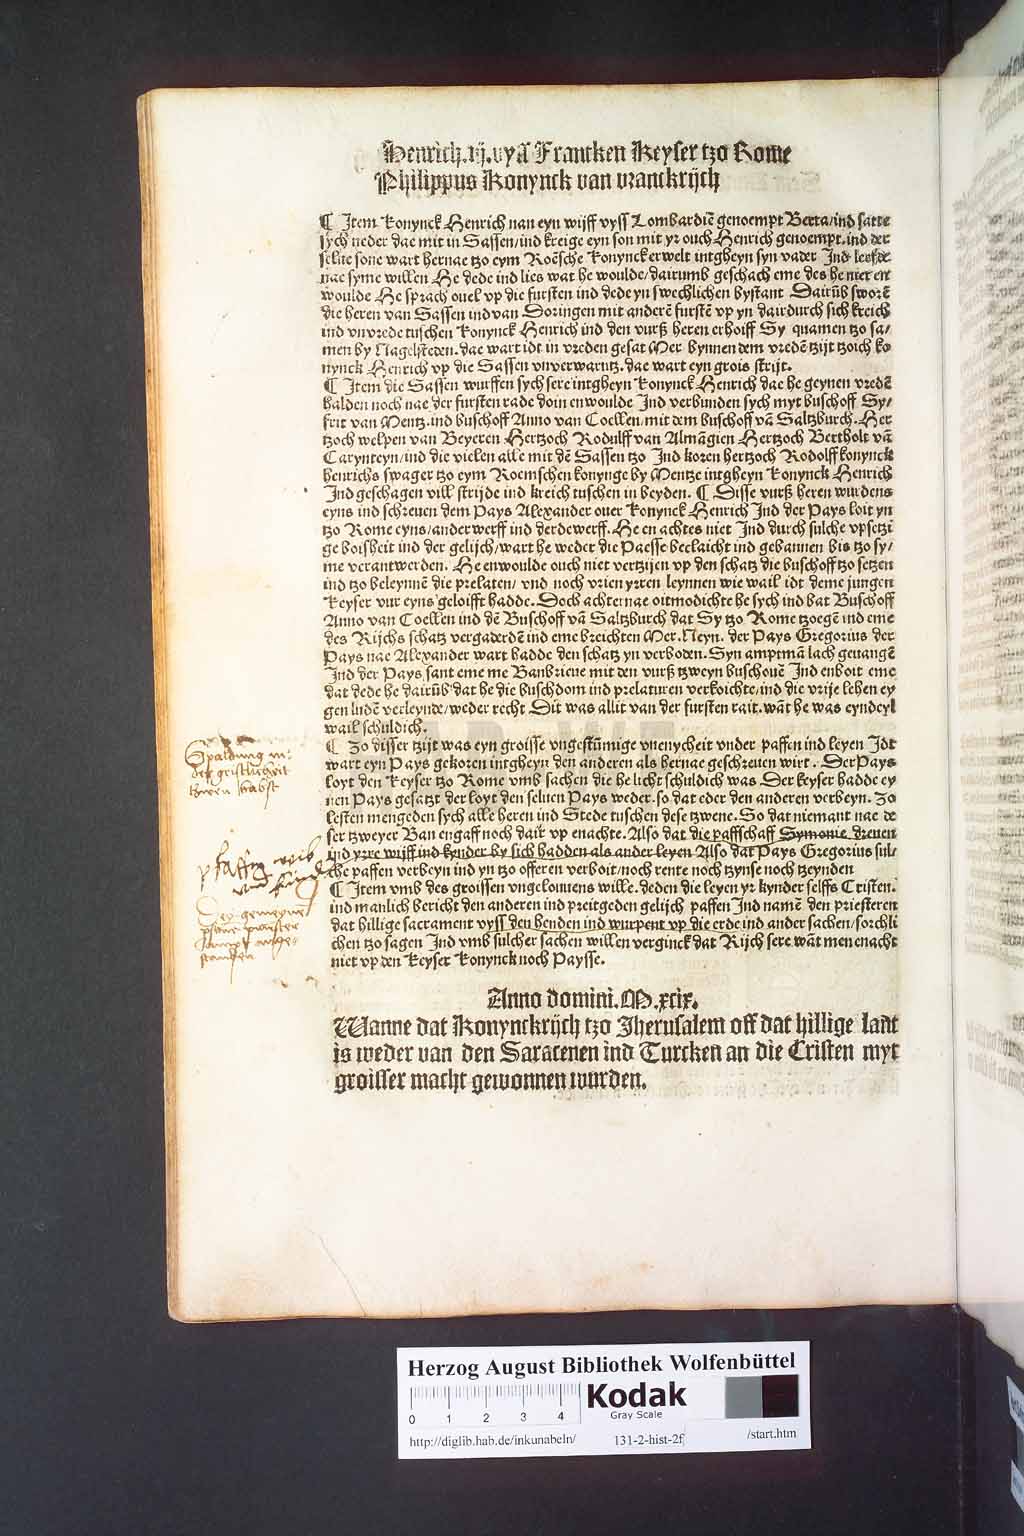 Henrich.iij.vyā Francken Keyser tzo Rome
Philippus Konynck van vranckrijch
¶ Item konynck Henrich nan eyn wijff vyss Lombardiē genoempt Berta/ind satte
sych neder dae mit in Sassen/ind kreige eyn son mit yr ouch Henrich genoempt.ind der
selue sone wart hernae tzo eym Roēsche konynck erwelt intgheyn syn vader Ind leefde
nae syme willen He dede ind lies wat he woulde/dairumb geschach eme des he niet en
woulde He sprach ouel vp die fursten ind dede yn swechlichen bystant Dairūb sworē
die heren van Sassen ind van Doringen mit anderē furstē vp yn dairdurch sich kreich
ind vnvrede tuschen konynck Henrich ind den vurß heren erhoiff Sy quamen tzo sa/
men by Nagelsteden.dae wart idt in vreden gesat Mer bynnen dem vredē tzijt tzoich ko
nynck Henrich vp die Sassen vnverwarntz.dae wart eyn grois strijt.
¶ Item die Sassen wurffen sych sere intgheyn konynck Henrich dae he geynen vredē
halden noch nae der fursten rade doin enwoulde Ind verbunden sych myt buschoff Sy/
frit van Mentz.ind buschoff Anno van Coellen/mit dem buschoff vā Saltzburch.Her
tzoch welpen van Beyeren Hertzoch Rodulff van Almāgien Hertzoch Bertholt vā
Carynteyn/ind die vielen alle mit dē Sassen tzo Ind koren hertzoch Rodolff konynck
henrichs swager tzo eym Roemschen konynge by Mentze intgheyn konynck Henrich
Ind geschagen vill strijde ind kreich tuschen in beyden. ¶ Disse vurß heren wurdens
eyns ind schreuen dem Pays Alexander ouer konynck Henrich Ind der Pays loit yn
tzo Rome eyns/anderwerff ind derdewerff.He en achtes niet Ind durch sulche vpsetzi
ge boisheit ind der gelijch/wart he weder die Paesse beclaicht ind gebannen bis tzo sy/
me verantwerden. He enwoulde ouch niet vertzijen vp den schatz die buschoff tzo setzen
ind tzo beleynnē die prelaten/ vnd noch vrien yrren leynnen wie wail idt deme jungen
keyser vur eyns geloifft hadde.Doch achternae oitmodichte he sych ind bat Buschoff
Anno van Coellen ind dē Buschoff vā Saltzburch dat Sy tzo Rome tzoegē ind eme
des Rijchs schatz vergaderdē ind eme breichten Mer.Neyn. der Pays Gregorius der
Pays nae Alexander wart hadde den schatz yn verboden.Syn amptmā lach geuangē
Ind der Pays sant eme me Banbrieue mit den vurß tzweyn buschouē Ind enboit eme
dat dede he dairūb dat he die buschdom ind prelaturen verkoichte/ind die vrije lehen ey
gen ludē verleynde/weder recht Dit was allit van der fursten rait.wāt he was eyndeyl
wail schuldich.
¶ Zo disser tzijt was eyn groisse vngestūmige vnenycheit vnder paffen ind leyen Idt
wart eyn Pays gekoren intgheyn den anderen als hernae geschreuen wirt. Der Pays
loyt den keyser tzo Rome vmb sachen die he licht schuldich was Der keyser hadde ey
nen Pays gesatzt der loyt den seluen Pays weder.so dat eder den anderen verbeyn. Zo
lesten mengeden sych alle heren ind Stede tuschen dese tzwene.So dat niemant nae de
ser tzweyer Ban engaff noch dair vp enachte.Also dat die paffschaff Symonie dreuen
ind yrre wijff ind kynder by sich hadden als ander leyen Also dat Pays Gregorius sul/
che paffen verbeyn ind yn tzo offeren verboit/noch rente noch tzynse noch tzeynden
¶ Item vmb des groissen vngelouuens wille.deden die leyen yr kynder selffs Cristen.
ind manlich bericht den anderen ind preitgeden gelijch paffen Ind namē den priesteren
dat hillige sacrament vyss den henden ind wurpent vp die erde ind ander sachen/sorchli
chen tzo sagen Ind vmb sulcher sachen willen verginck dat Rijch sere.wāt men enacht
niet vp den keyser konynck noch Paysse.
Spaldung in
der geistlicheit
tzween babst
pfaffen weib
und kind
Anno domini.M.xcix.
Wanne dat Konynckrijch tzo Jherusalem off dat hillige lant
is weder van den Saracenen ind Turcken an die Cristen myt
groisser macht gewonnen wurden.
Herzog August Bibliothek Wolfenbüttel
0 1 2 3 4
Kodak
Gray Scale
http://diglib.hab.de/inkunabeln/ 131-2-hist-2f /start.htm